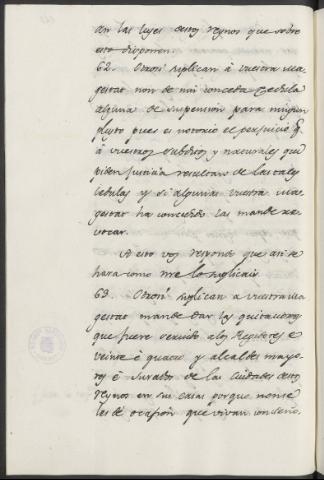 an las leyes destos reynos que sobre
esto disponen.
62. Otrosi suplican á vuestra ma
gestat non de nin conceda zedula
alguna de suspension para ningun
pleyto pues es notorio el perjuicio q
á vuestros subditos y naturales que
piden justicia resultan de las tales
cedulas y si algunas vuestra ma
gestat ha concedido las mande re
vocar.
A esto vos respondo que asi se
hara como me lo suplicais
63. Otrosi suplican a vuestra ma
gestat mande dar las quitaciones
que fuere servido a los Regidores é
veinte é quatro y alcaldes mayo
res é Jurados de las ciudades destos
reynos en sus casas porque non se
les dé ocasion que vivan con seño